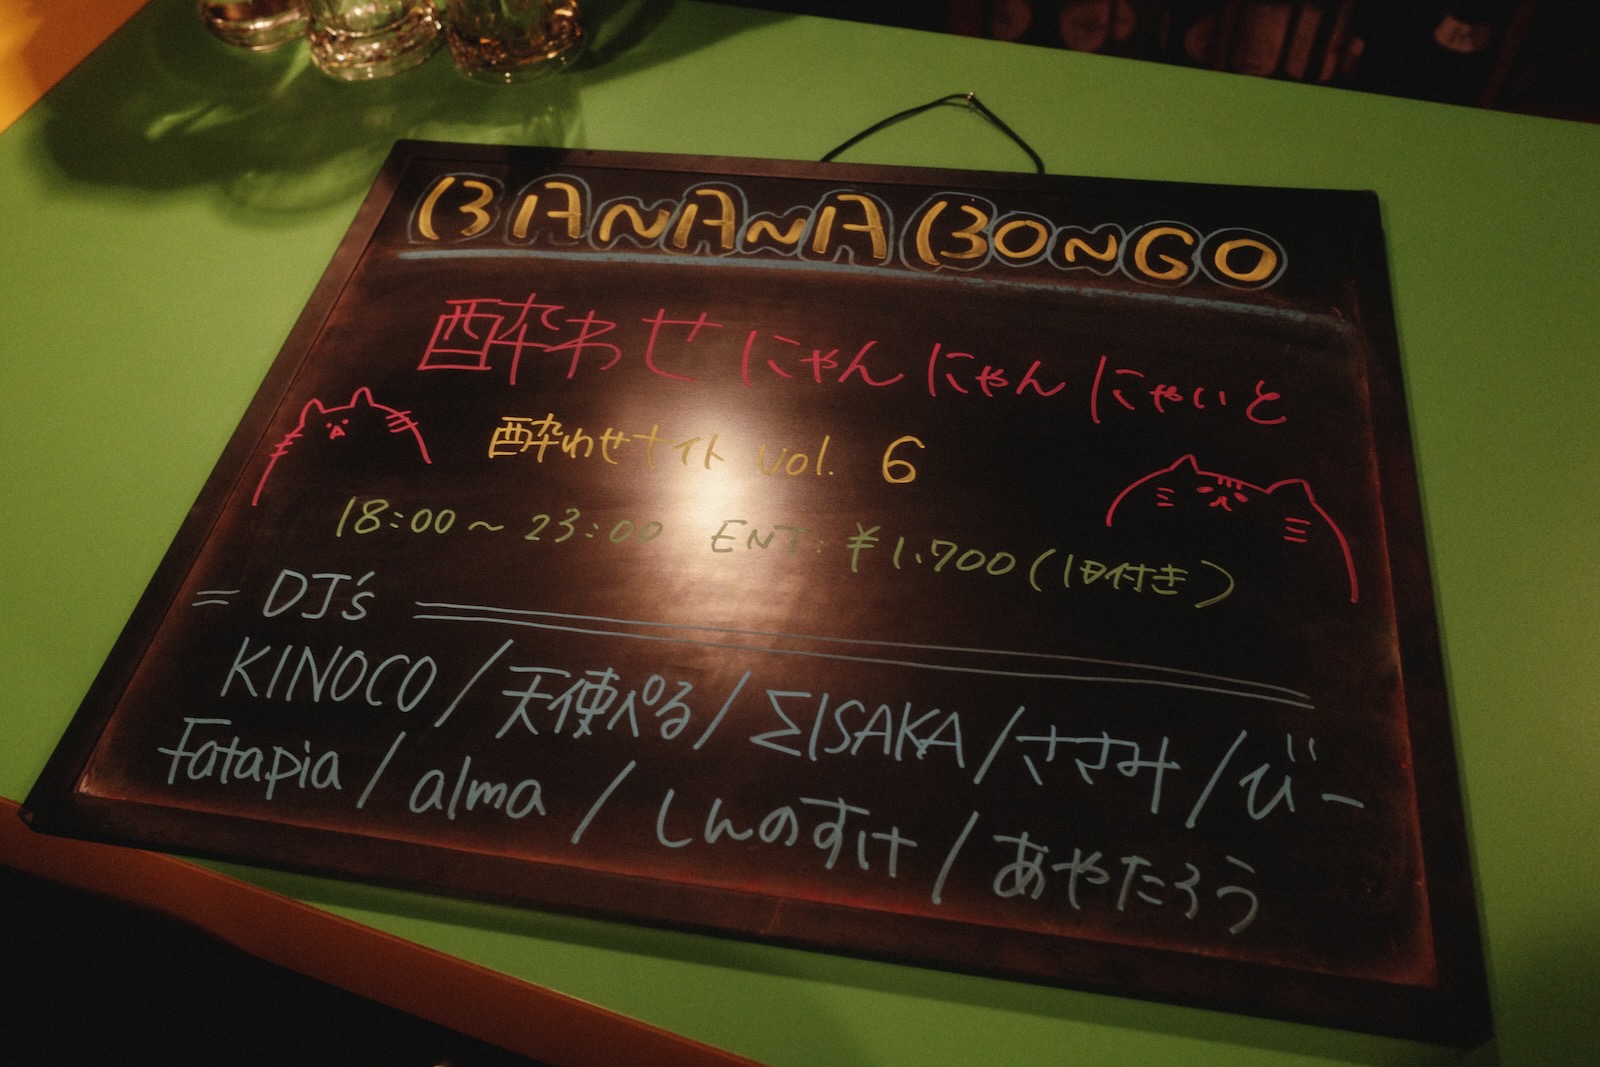 BANANA BONGO
酔わせにゃんにゃんにゃいと
酔わせナイト vol. 6
18:00~23:00 ENT: ¥1.700(1D付き)
= DJ's
KINOCO/天使ぺる/ΣISAKA/ささみ/びー
fatapia/alma/しんのすけ/あやたろう